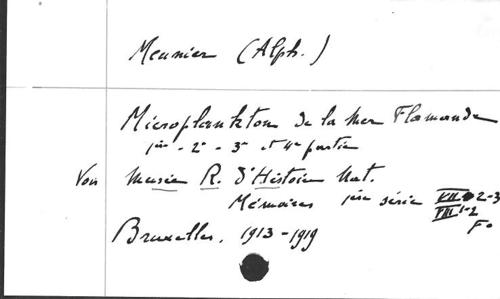 Meunier (Alph.)
Microplankton de la Mer Flamande
1ère - 2e - 3e et 4e partie
Voir Musée R. d'Histoire Nat.
Mémoires 1ère série VII 2-3
VIII 1-2
F°
Bruxelles, 1913-1919